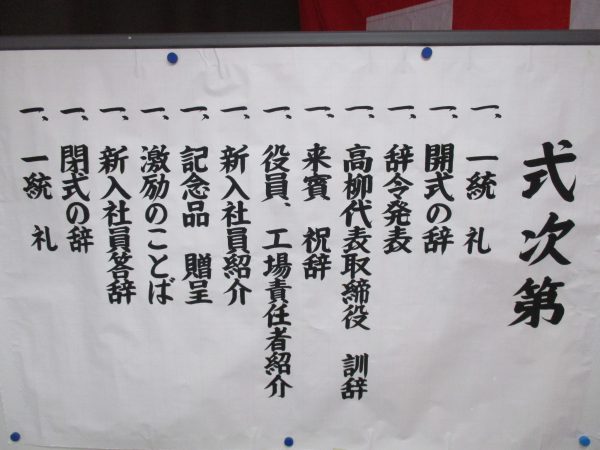 式次第
一、一統 礼
一、開式の辞
一、辞令発表
一、高柳代表取締役 訓辞
一、来賓 祝辞
一、役員、工場責任者紹介
一、新入社員紹介
一、記念品 贈呈
一、激励のことば
一、新入社員答辞
一、閉式の辞
一、一統 礼